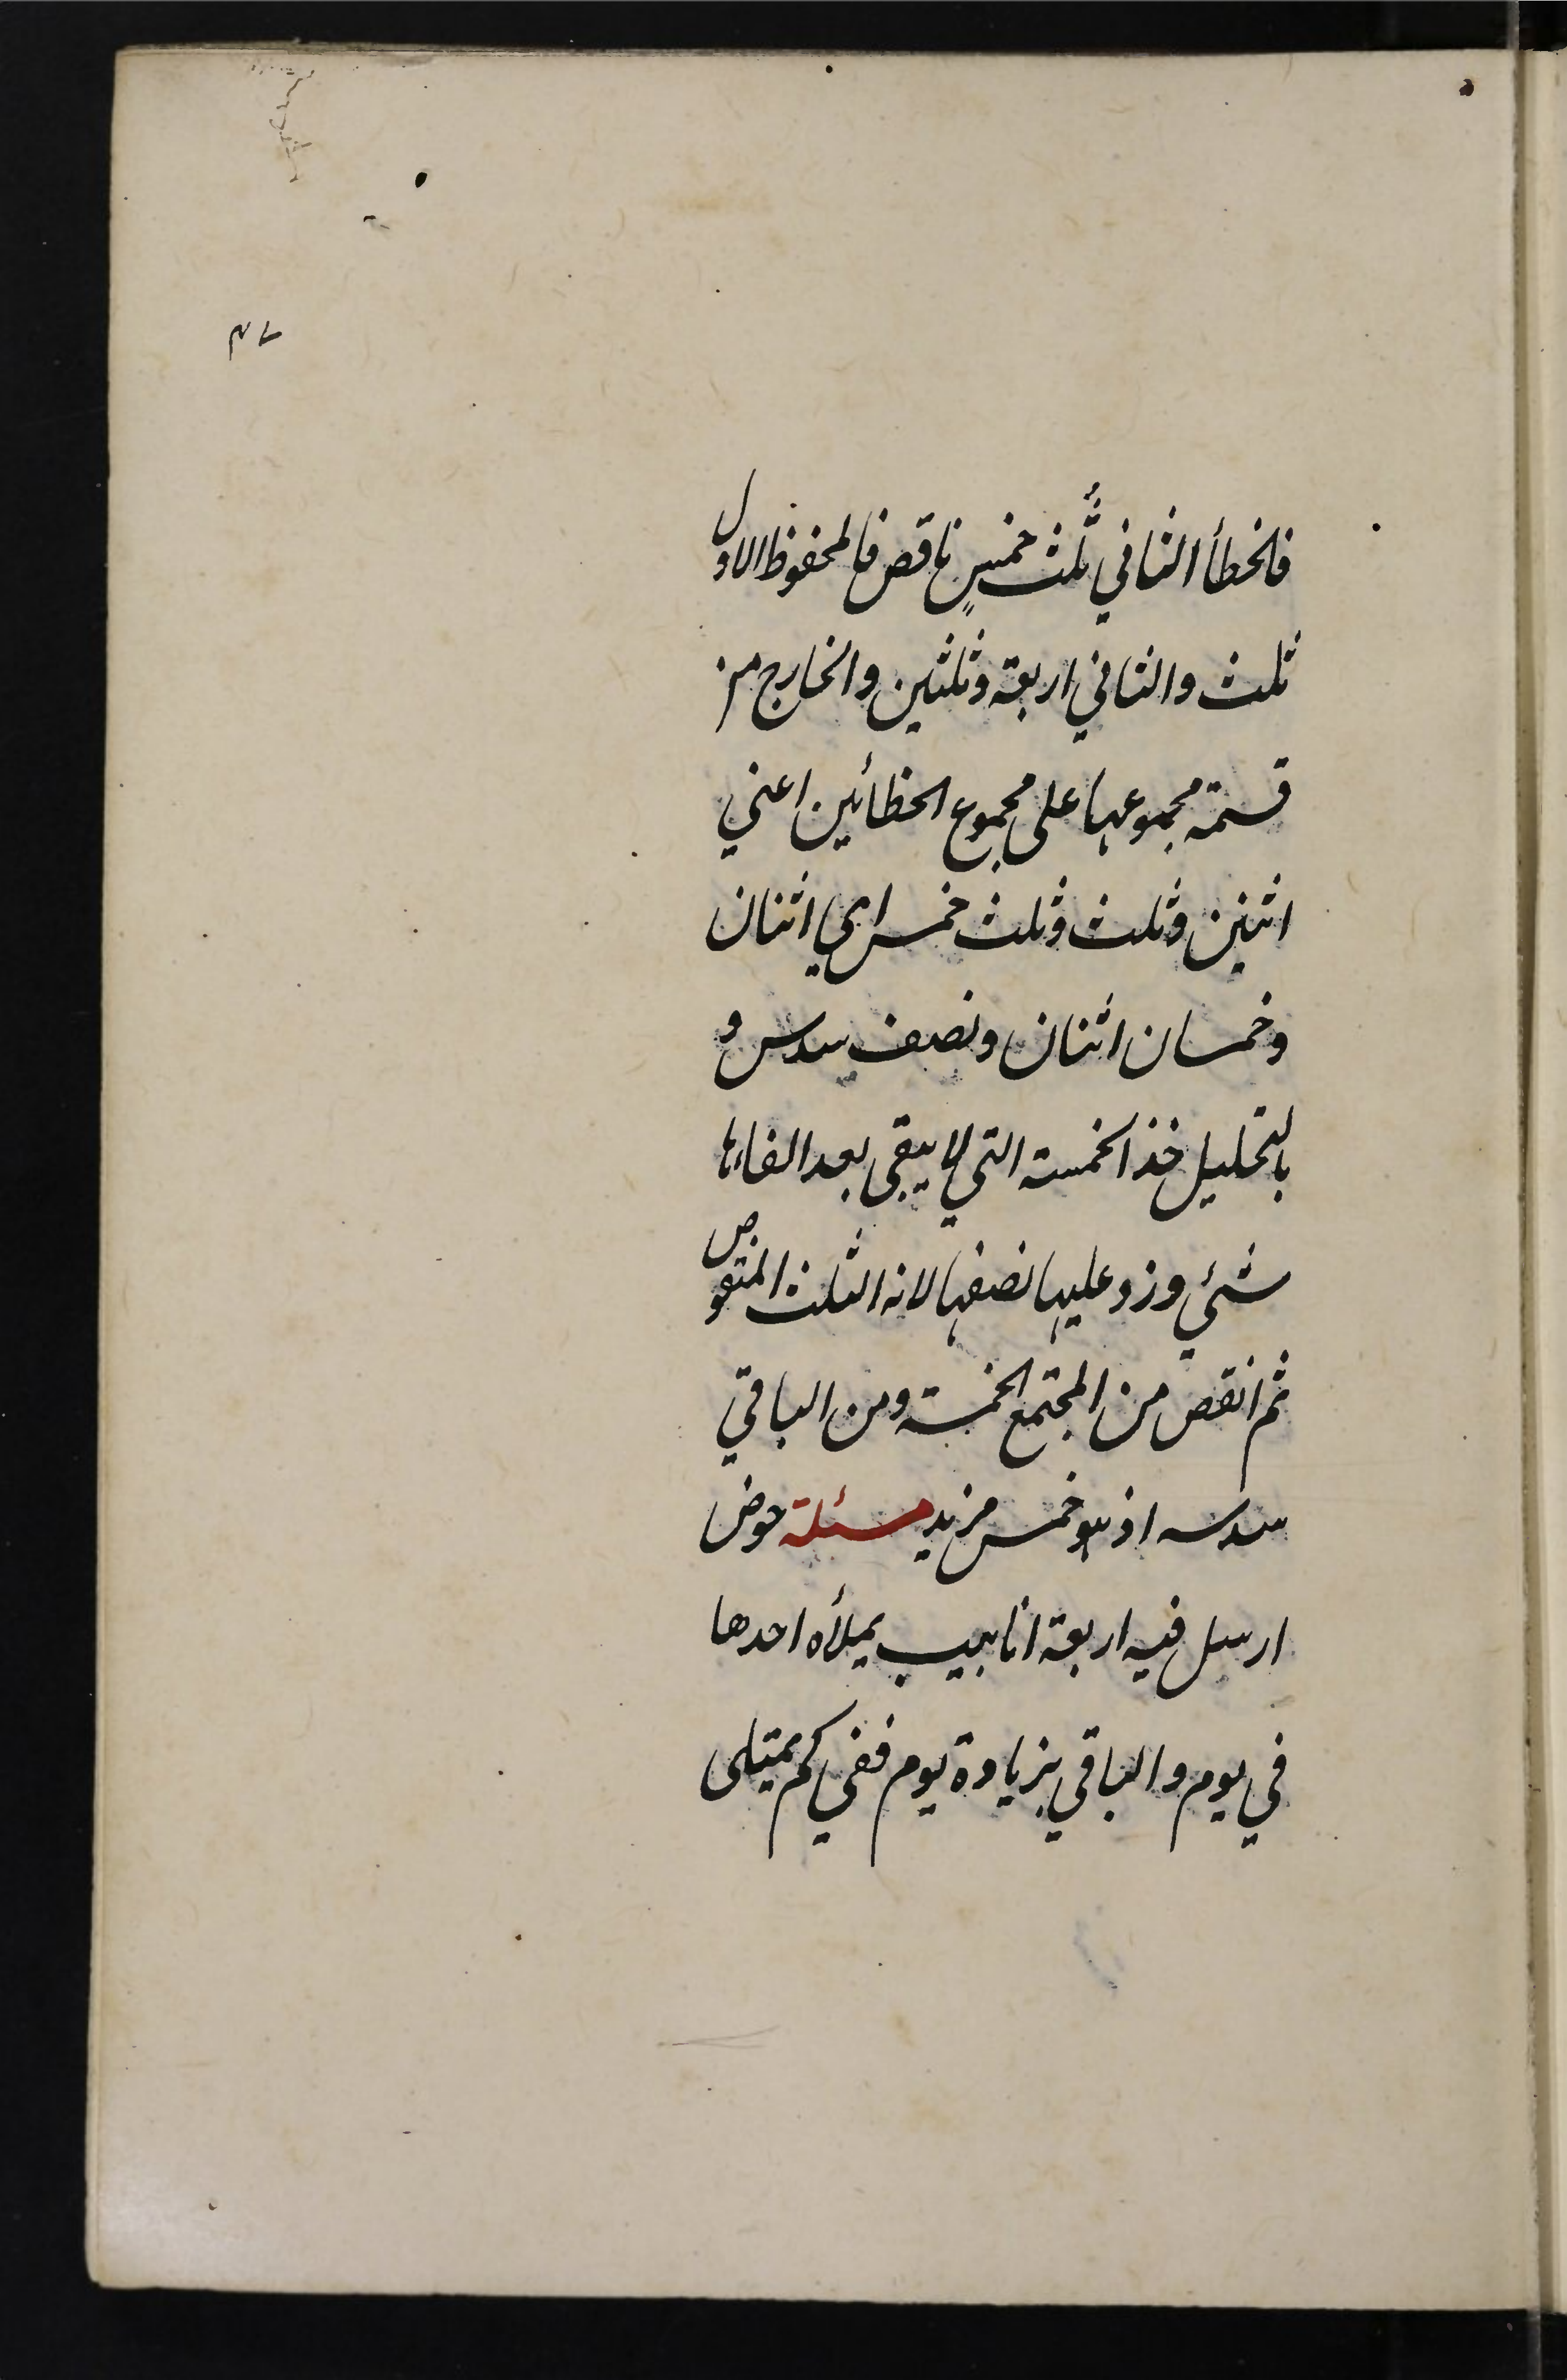 ٤٧
فالخطأ الثاني ثُلُث خمسٍ ناقص فالمحفوظ الاول
ثلث والثاني اربعة وثلثين والخارج من
قسمة مجموعهما على مجموع الخطأين اعني
اثنين وثلث وثلث خمس اي اثنان
وخمسان اثنان ونصف سدس و
بالتحليل خذ الخمسة التي لا يبقى بعد القائها
شئ وزد عليها نصفها لانه الثلث المنقوص
ثم انقص من المجتمع الخمسة ومن الباقي
سدسه اذ هو خمس مزيد مسئلة حوض
ارسل فيه اربعة انابيب يملأه احدها
في يوم والباقي بزيادة يوم ففي كم يمتلى